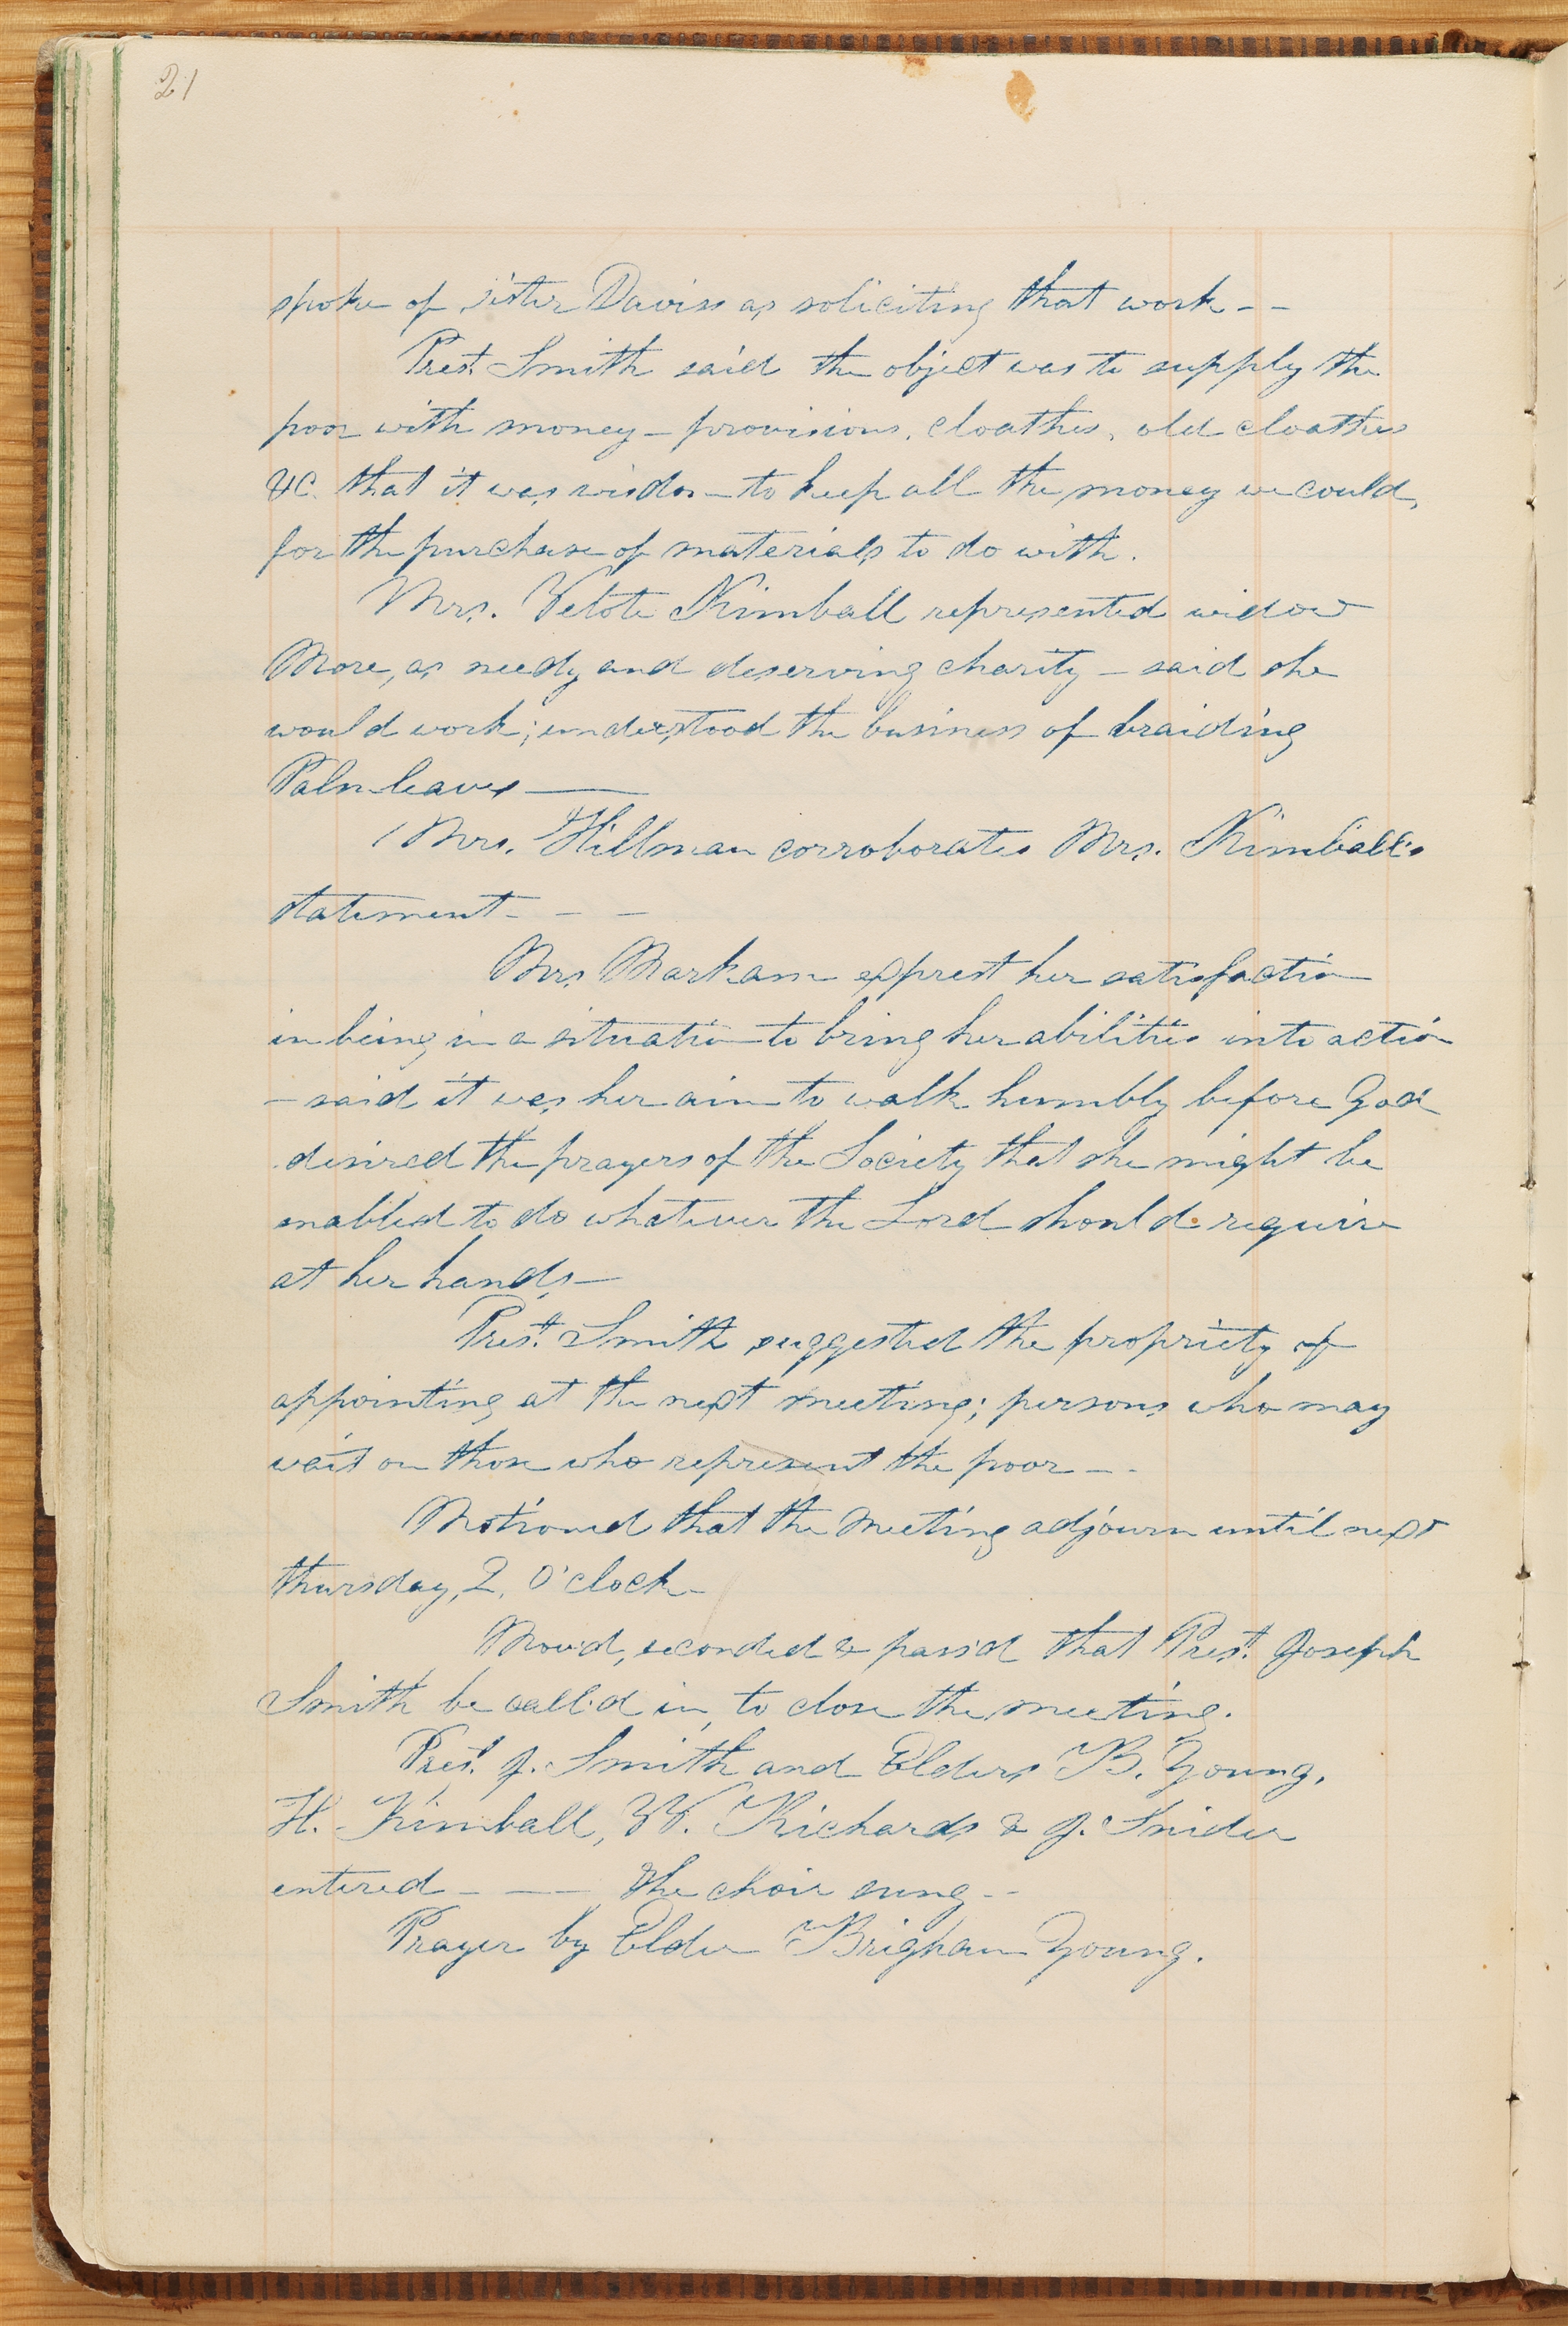 21
spoke of sister Daviss as soliciting that work - -
Prest. Smith said the object was to supply the
poor with money - provisions, cloathes, old cloathes
&c. that it was wisdom to keep all the money we could,
for the purchase of materials to do with.
Mrs. Velote Kimball represented widow
More, as needy and deserving charity - said she
would work; understood the business of braiding
Palm-leaves ——
Mrs. Hillman corroborates Mrs. Kimball's
statement - - -
Mrs. Markam exprest her satisfaction
in being in a situation to bring her abilities into action
- said it was her aim to walk humbly before God
desired the prayers of the Society that she might be
enabled to do whatever the Lord should require
at her hands -
Prest. Smith suggested the propriety of
appointing at the next meeting; persons who may
wait on those who represent the poor - -
Motioned that the meeting adjourn until next
thursday, 2, O'clock -
Mov'd, seconded & pass'd that Prest. Joseph
Smith be call'd in, to close the meeting.
Prest. J. Smith and Elders B. Young,
H. Kimball, W. Richards & J. Snider
entered - —— the choir sung - -
Prayer by Elder Brigham Young.